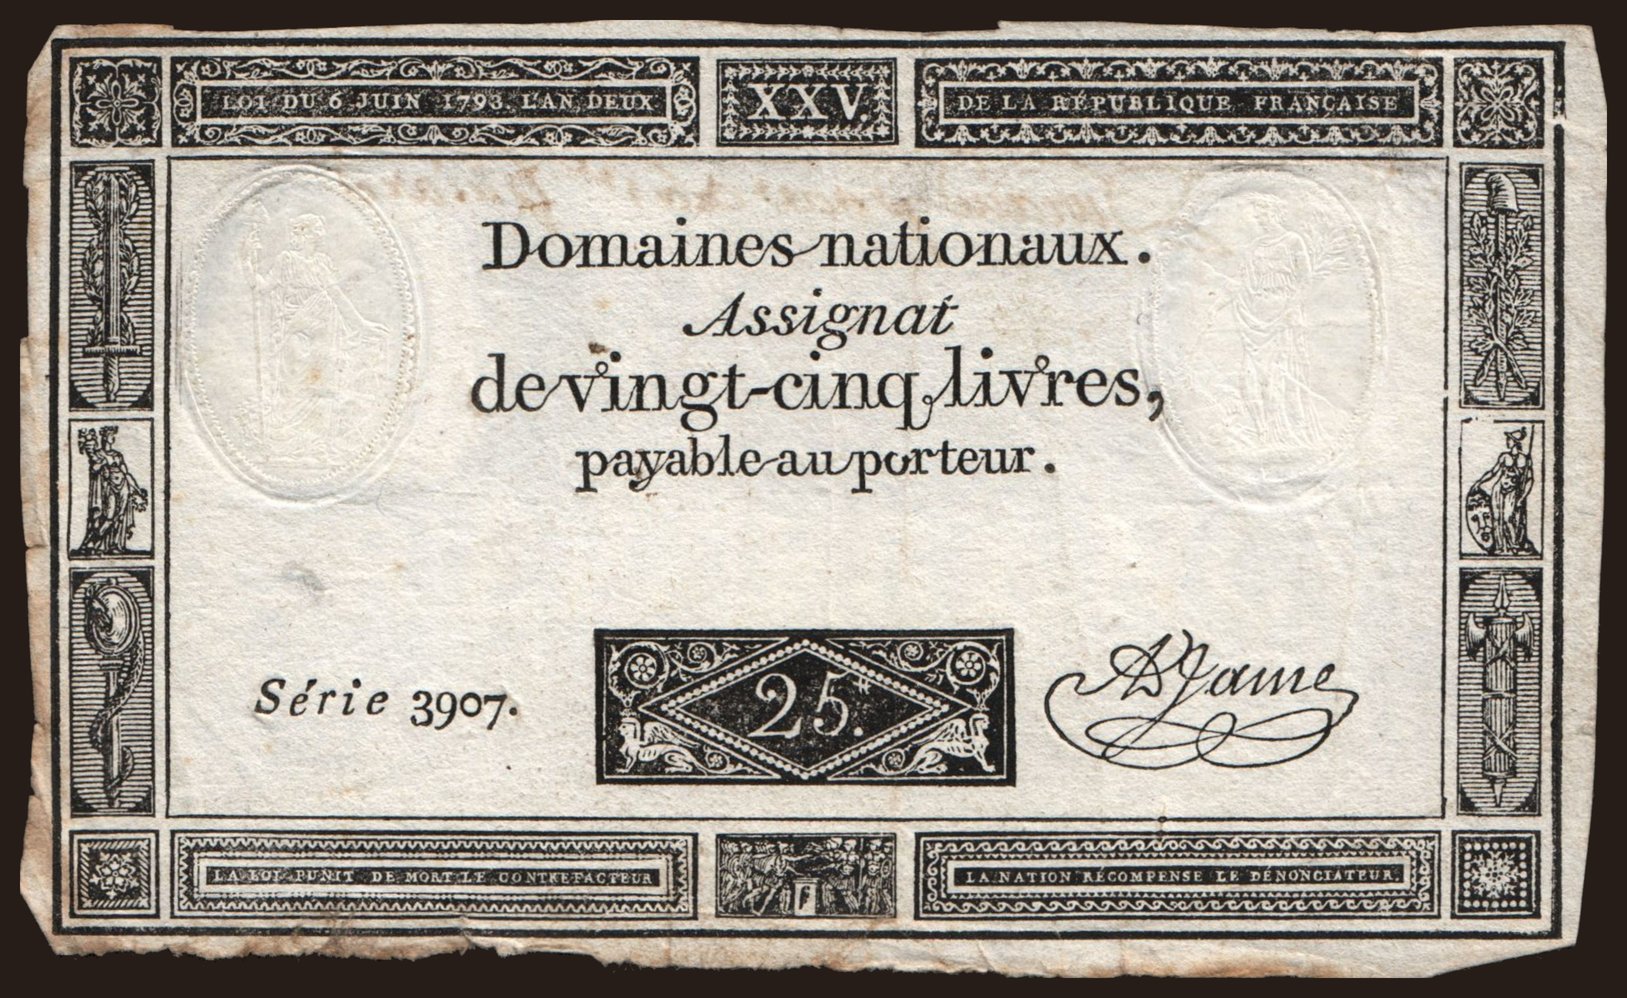 LOI DU 6 JUIN 1793. L'AN DEUX
XXV.
DE LA RÉPUBLIQUE FRANÇAISE
Domaines nationaux.
Assignat
de vingt-cinq livres,
payable au porteur.
Série 3907.
25.
A Jame
LA LOI PUNIT DE MORT LE CONTREFACTEUR
LA NATION RÉCOMPENSE LE DÉNONCIATEUR.